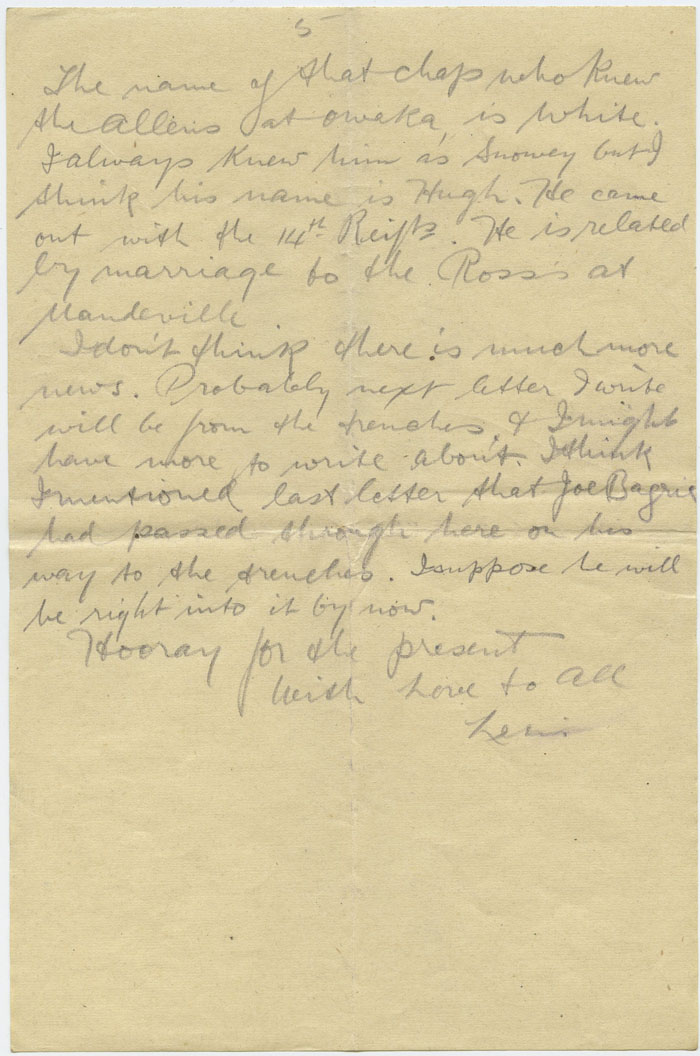 5
The name of that chap who knew
the Allens at Owaka is White.
I always knew him as Snowey but I
think his name is Hugh. He came
out with the 14th Reifts. He is related
by marriage to the Ross's at
Mandeville
I don't think there is much more
news. Probably next letter I write
will be from the trenches & I might
have more to write about. I think
I mentioned last letter that Joe Bagrie
had passed through here on his
way to the trenches. I suppose he will
be right into it by now.
Hooray for the present
With Love to All